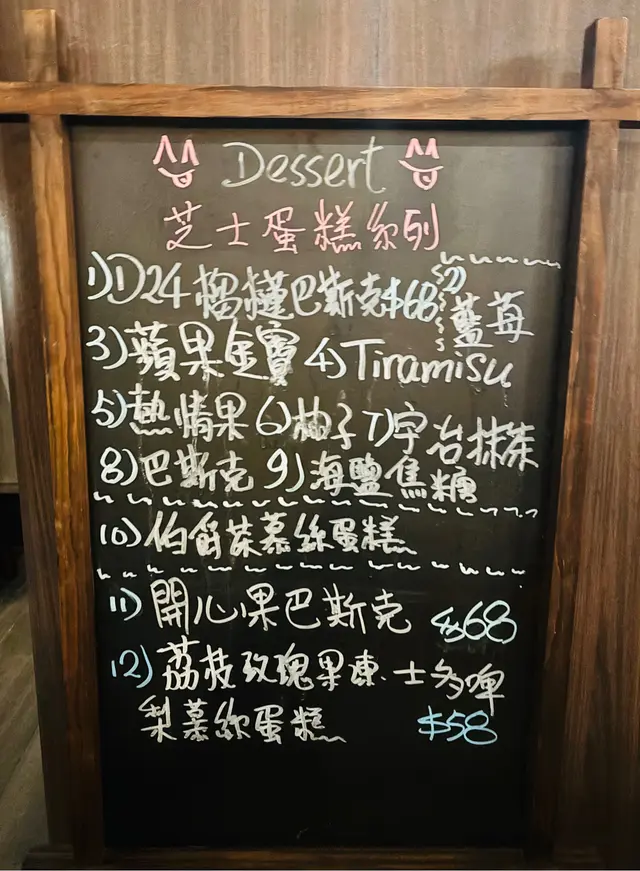 Dessert
芝士蛋糕系列
1) D24 榴槤巴斯克 $68 2) 藍莓
3) 蘋果金寶 4) Tiramisu
5) 熱情果 6) 柚子 7) 宇治抹茶
8) 巴斯克 9) 海鹽焦糖
10) 伯爵茶慕絲蛋糕
11) 開心果巴斯克 $68
12) 荔枝玫瑰果凍.士多啤
梨慕絲蛋糕 $58